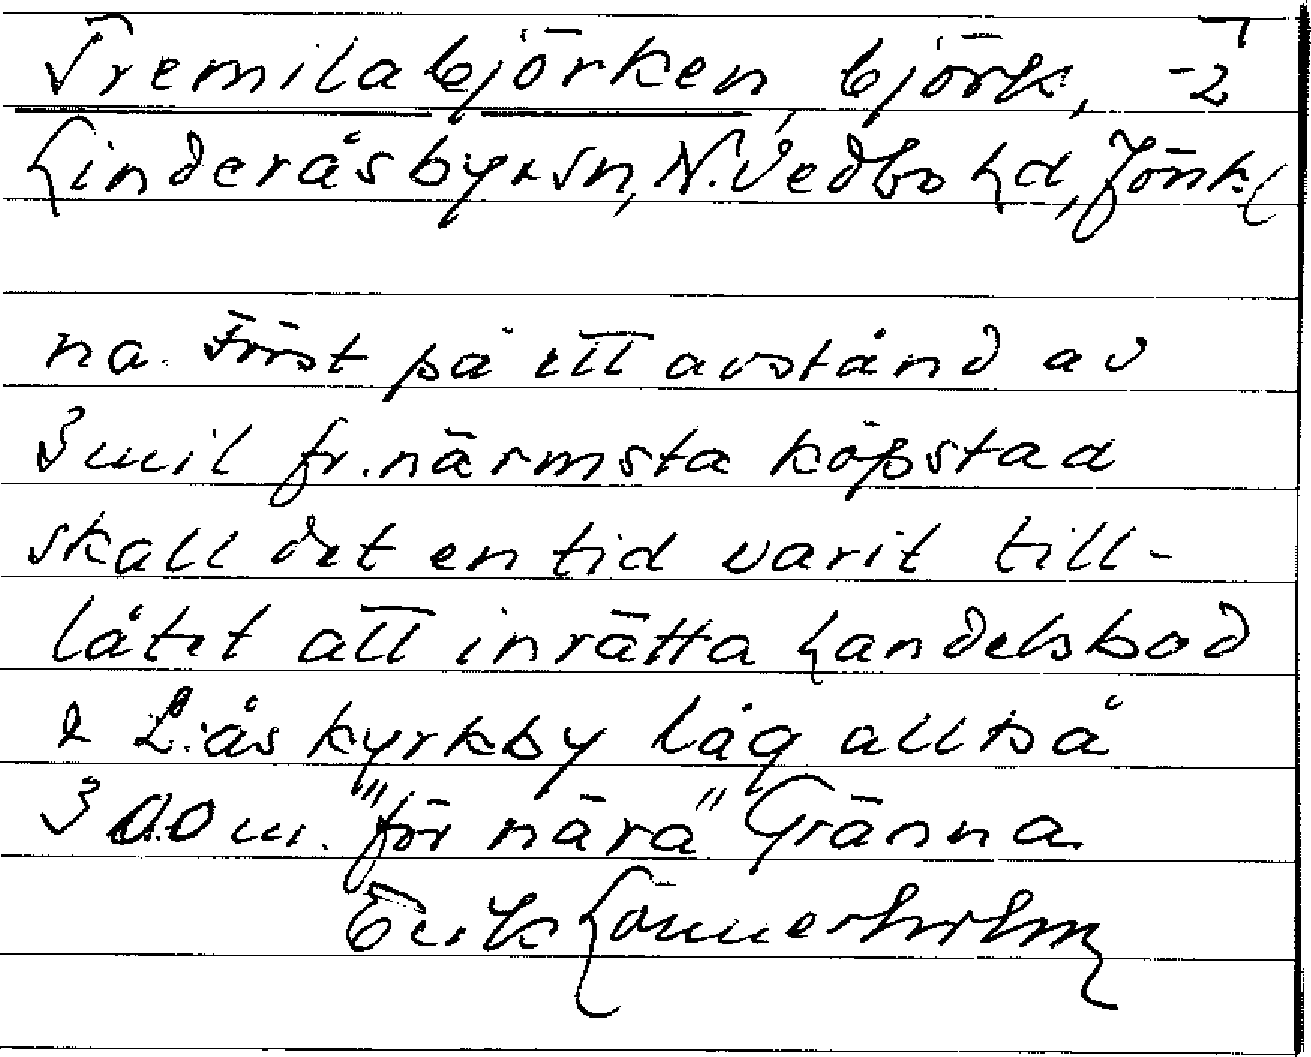 Tremilabjörken, björk, -2
Linderåsbyrsn, N. Vedbo hd, Jönk.l
na. Först på ett avstånd av
3 mil fr. närmsta köpstad
skall det en tid varit till-
låtet att inrätta handelsbod
& L:ås kyrkby låg alltså
300 m. "för nära" Gränna
Erik Lönnerholm